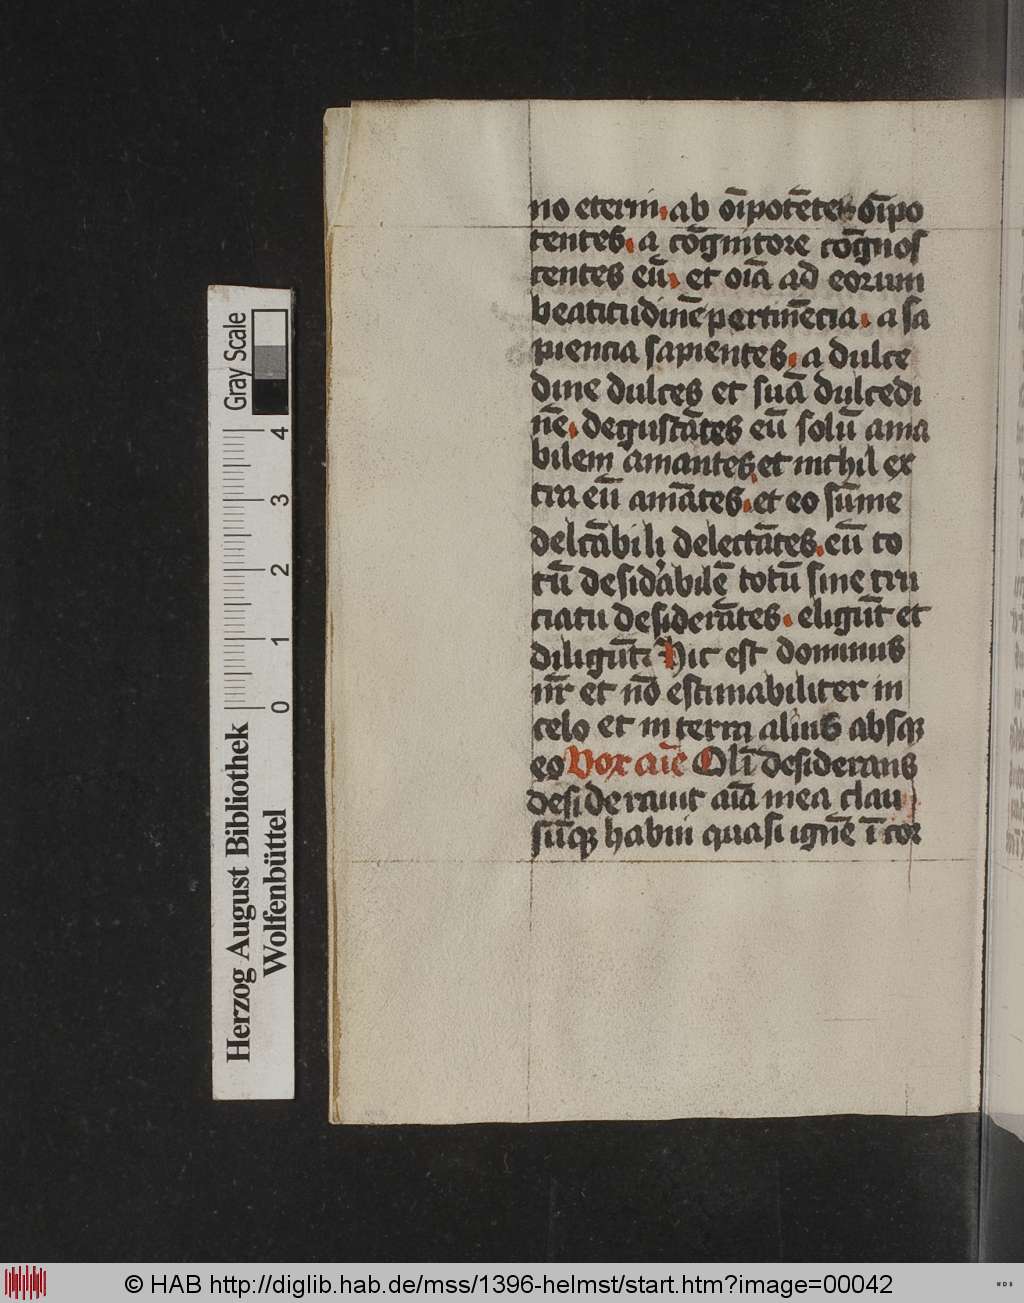 no eterni. ab oīpotēte oīpo
tentes. a cōgnitore cōgnos
centes eū. et oīa ad eorum
beatitudinē pertinēcia. a sa
piencia sapientes. a dulce
dine dulces et suā dulcedi
nē. degustātes eū solū ama
bilem amantes et nichil ex
tra eū amātes. et eo sūme
delcābili delectātes. eū to
tū desid'abilē totū sine cru
ciatu desiderātes. eligūt et
diligūt. Hic est dominus
nr̄ et nō estimabiliter in
celo et in terra alius absq
eo Vox aīe Olī desiderans
desiderauit aīa mea clau
sūq habui quasi ignē ī cor
Herzog August Bibliothek
Wolfenbüttel
Gray Scale
0 1 2 3 4
© HAB http://diglib.hab.de/mss/1396-helmst/start.htm?image=00042